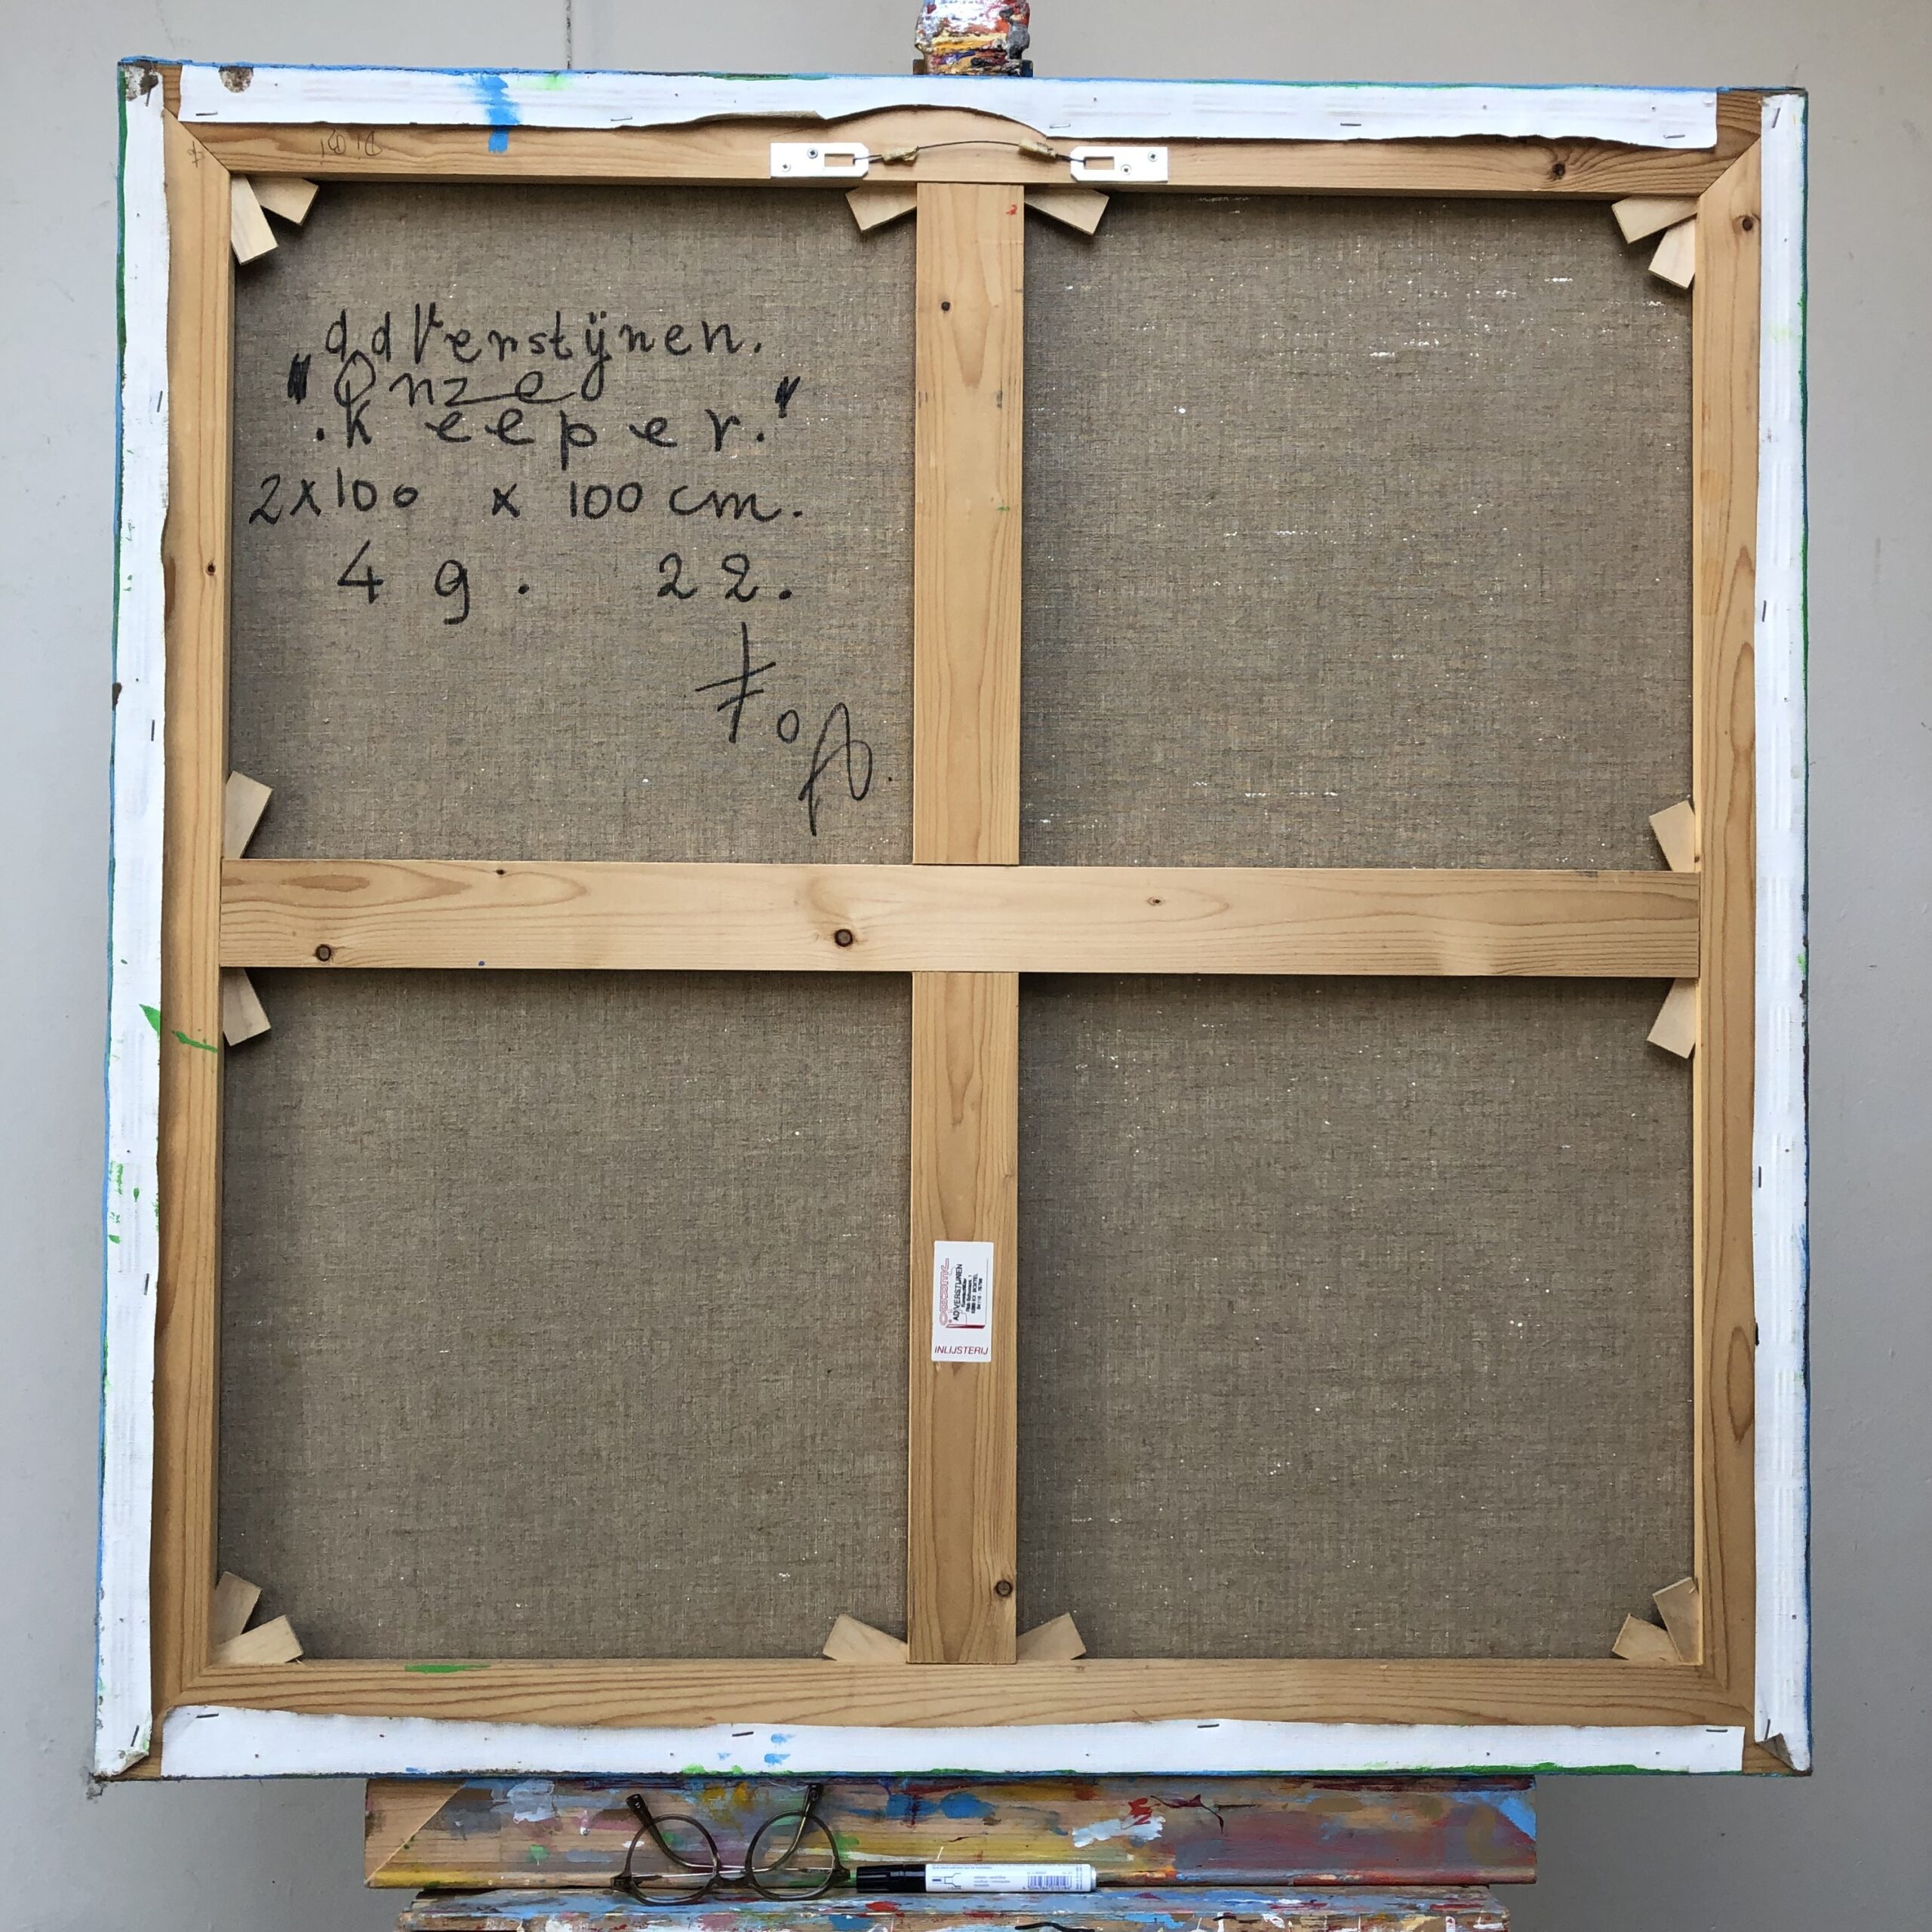 adVerstijnen.
"Onze
.Keeper."
2x100 x 100 cm.
4 9. 22.
AD VERSTIJNEN
INLIJSTERIJ